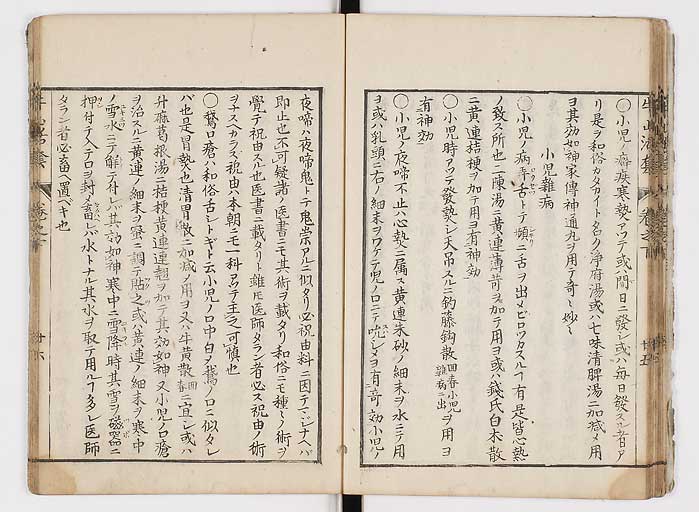 〇小児ノ癖疾寒熱アツテ或ハ間日ニ發シ或ハ毎日發スル者ア
リ是ヲ和俗カタカイト名ク浄府湯或ハ七味清脾湯ニ加减メ用
ヨ其効如神家傳神通丸ヲ用テ奇〻妙〻
小児雜病
〇小児ノ病弄舌トテ頻ニ舌ヲ出メビロツカスルフ有是皆心熱
ノ致ス所也二陳湯ニ黄連薄荷ヲ加テ用ヨ或ハ錢氏白朮散
ニ黄連桔梗ヲ加テ用ヨ有神効
〇小児時アツテ發熱シ天吊スルニ釣藤鈎散回春小児雜病ニ出ヲ用ヨ
有神効
〇小児ノ夜啼不止ハ心熱ニ属ス黄連朱砂ノ細末ヲ水ニテ用
ヨ或ハ乳頭ニ右ノ細末ヲワケテ児ノ口ニテ吮シメヨ有奇効小児ノ
夜啼ハ夜啼鬼トテ鬼祟アルニ似タリ必祝由科ニ因テマジナヘバ
即止也不可疑諸ノ医書ニモ其術ヲ載タリ和俗ニモ種〻ノ術ヲ
覺テ祝由スル也医書ニ載タリト雖𪜈医師タラン者必ス祝由ノ術
ヲナスヘカラズ祝由ハ本朝ニモ一科アツテ主之可慎也
〇鵞口瘡ハ和俗舌シトギト云小児ノ口中白ノ鵞ノ口ニ似タレ
バ也是胃熱也清胃散ニ加减ノ用ヨ又ハ牛黄散回春ニ宜シ或ハ
升麻葛根湯ニ桔梗黄連連翹ヲ加テ其効如神又小児ノ口瘡
ヲ治スルニ黄連ノ細末ヲ蜜ニ調テ貼之或ハ黄連ノ細末ヲ寒中
ノ雪水ニテ解テ付レバ其効如神寒中ニ雪降時其雪ヲ磁器ニ
押付テ入テ口ヲ封メ畜レバ水トナル其水ヲ取テ用ルフ多シ医師
タラン者必畜ヘ置ベキ也